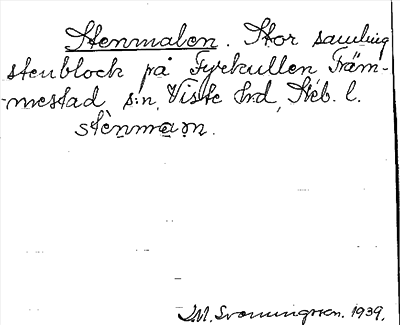 Stenmalen. Stor samling
stenblock på Fyrkullen Främ-
mestad s:n, Viste hrd, Skb. l.
stènma̱ṇ.
J.M. Svenningsson. 1939.